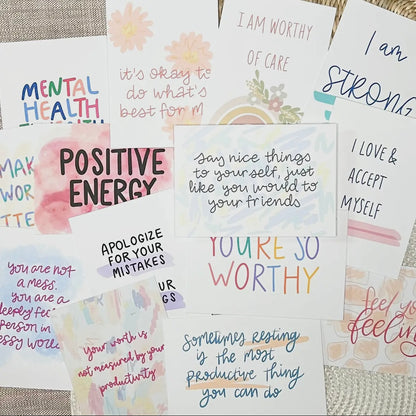 MENTAL
HEALTH
it's okay to
do what's
best for
I AM WORTHY
OF CARE
I am
STRONG
POSITIVE
ENERGY
say nice things
to yourself, just
like you would to
your friends
I LOVE &
ACCEPT
MYSELF
APOLOGIZE
FOR YOUR
MISTAKES
YOU'RE SO
WORTHY
you are not
a mess.
you are a
person in
your worth is
not measured by your
productivity
Sometimes resting
is the most
productive thing
you can do
feel